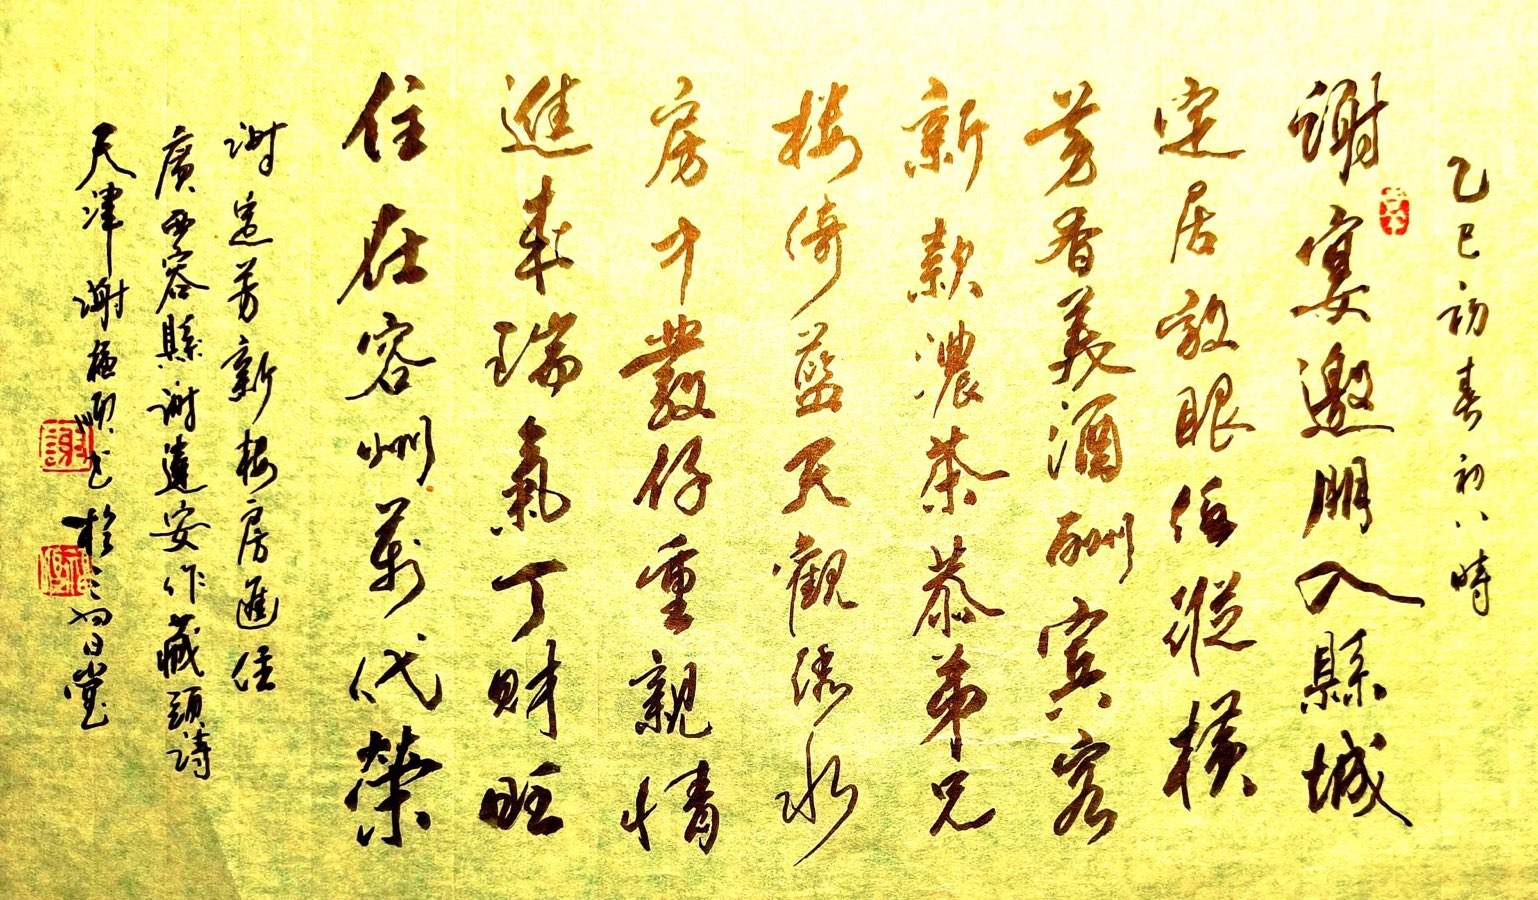 乙巳初春初八時
謝宴邀朋入縣城
定居放眼任縱橫
芳香美酒酬賓客
新款濃茶恭弟兄
樓倚藍天觀綠水
房中叢仔重親情
進來瑞氣丁財旺
住在容州萬代榮
謝定芳新樓房進住
廣西容縣謝達安作藏頭詩
天津謝 書於 旭日堂
謝